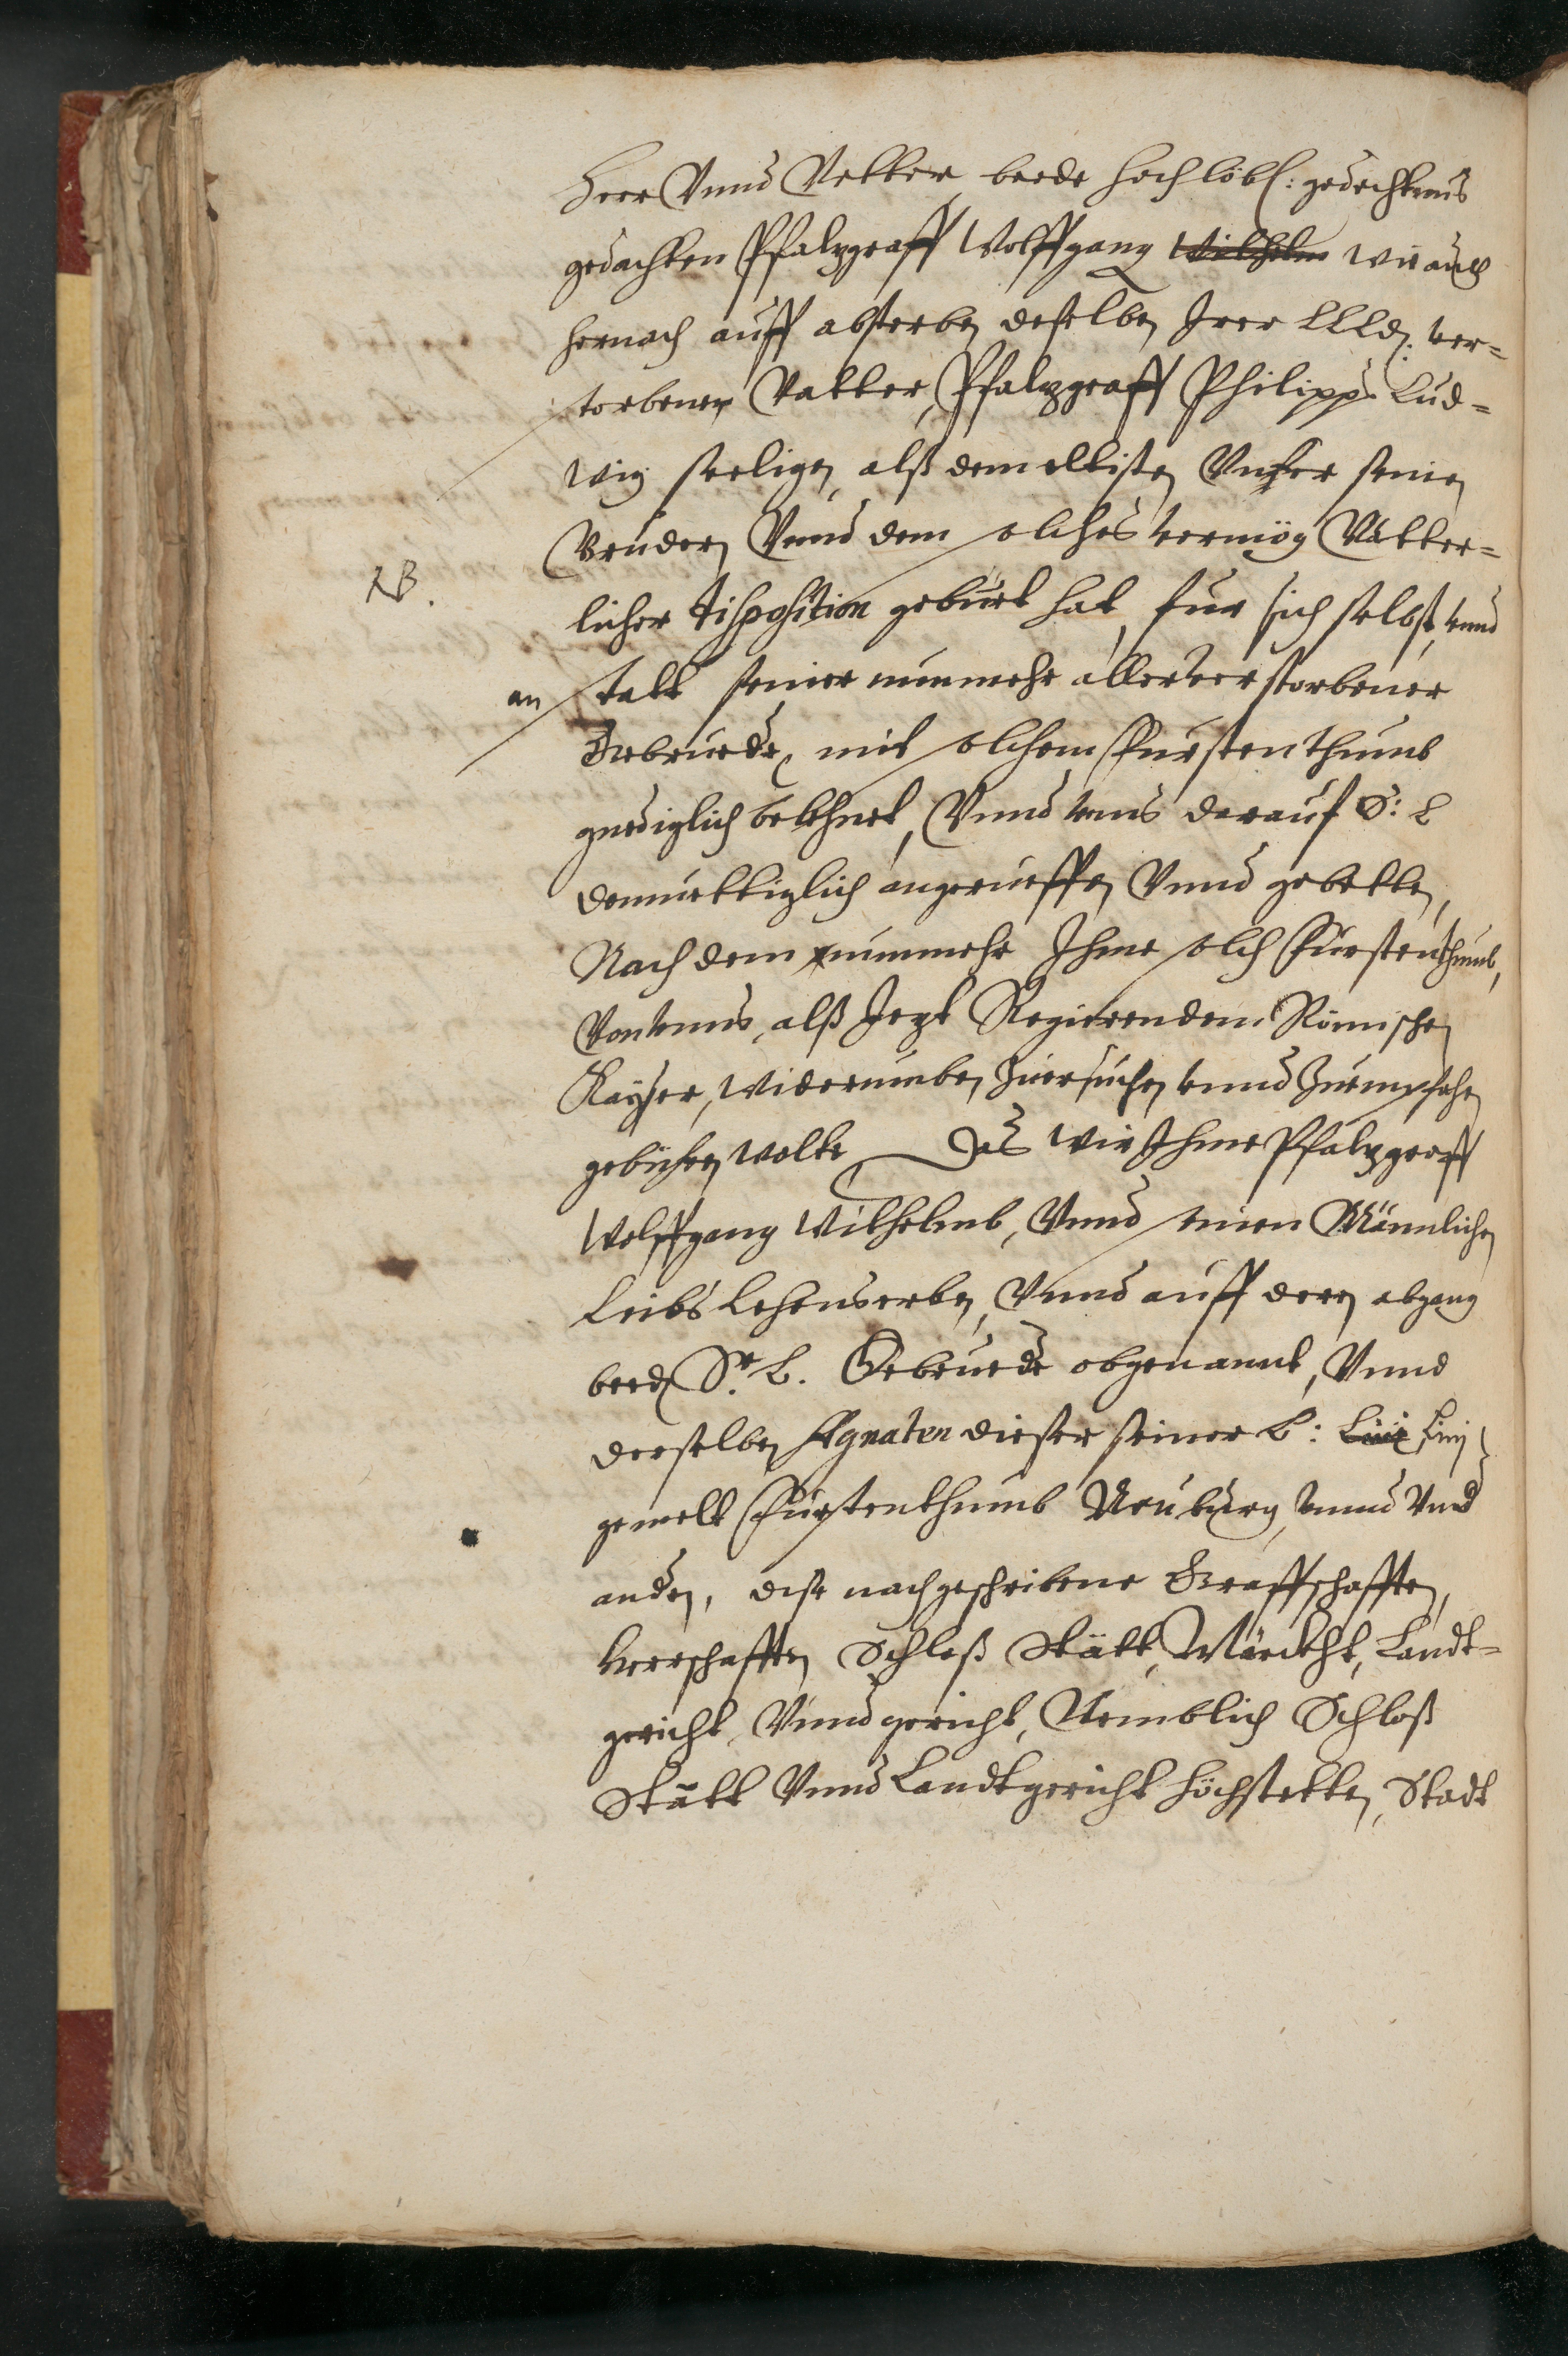 Herr Vnnd Vetter, beede hochlöbl: gedechtnus
gedachten Pfalzgraff Wolffgang Wilhelm wie auch
hernach auff absterben deselben Irer LLLd: ver=
storbenen Vatter, Pfalzgraff Philipps Lud=
wig seeligen, alß dem elltisten Vnser seinen
Bruedern Vnnd dem solches vermög Vätter=
NB.
licher disposition gebürt hat, fur sich selbst, vnnd
an statt seiner nunmehr aller verstorbener
Gebrueder, mit solchem Furstenthumb
gnediglich belehnet, Vnnd vnns darauf S: L
demuettiglich angerueffen Vnnd gebetten,
Nach dem nunmehr Ihme solch Furstenthumb,
Von vnns, alß Jezt Regierendem Römischen
Kayser, widerumben Zuersuchen vnnd Zuempfahen
gebüren wolte, Das wir Ihme Pfalzgraff
Wolffgang Wilhelmb, Vnnd seinen Männlichen
Leibs Lehenserben, Vnnd auff deren abgang
beeden Sr. L. Gebrueder obgenannt, Vnnd
derselben Agnaten dieser seiner L: Linie Linj
gemelt Furstenthumb Neuburg, vnnd Vnd
andern, dise nachgeschribene Graffschafften,
Herrschafften Schloß Stätt, Märckht, Landt=
gericht Vnnd gericht, Nemblich Schloß
Stätt Vnnd Landtgericht Höchstetten, Stadt